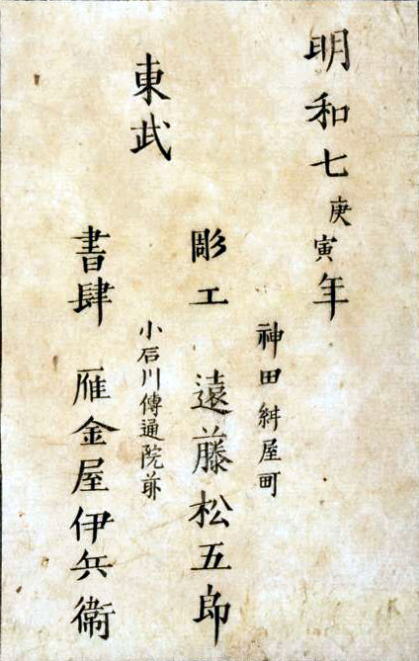 明和七庚寅年
神田紺屋町
彫工 遠藤松五郎
東武
小石川傳通院前
書肆 雁金屋伊兵衛